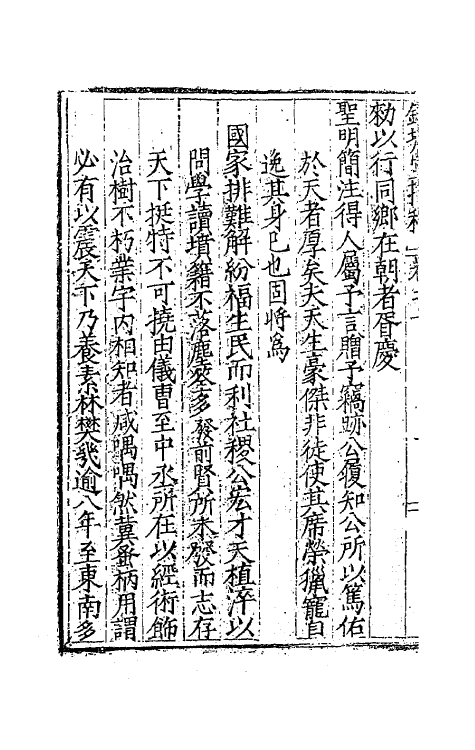 勑以行同鄉在朝者胥慶
聖明簡注得人屬予言贈予竊跡公復知公所以篤佑
於天者厚矣夫天生豪傑非徒使其席榮獵寵自
逸其身已也固將為
國家排難解紛福生民而利社稷公宏才天植淬以
問學讀墳籍不落塵壑多發前賢所未發而志存
天下挺特不可撓由儀曹至中丞所在以經術飾
治樹不朽業宇內相知者咸隅隅然冀登柄用謂
必有以震天下乃養素林樊幾逾八年至東南多